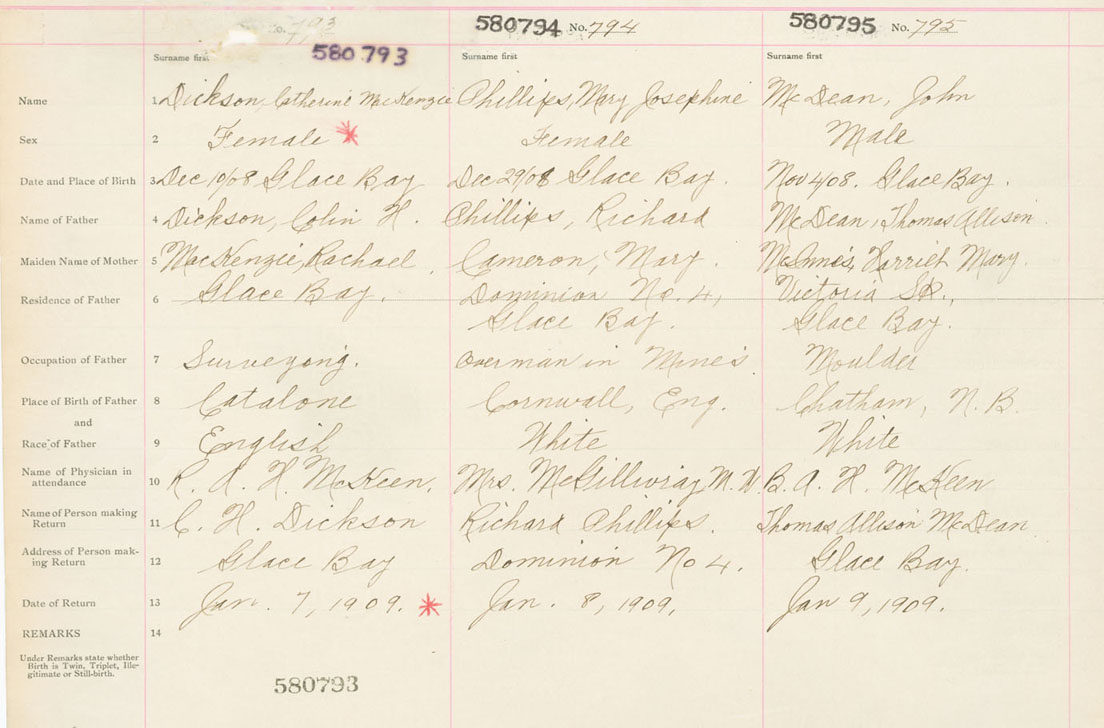 No. 793
580794 No. 794
580795 No. 795
580793
Surname first
Surname first
Surname first
Name 1 Dickson, Catherine MacKenzie Phillips, Mary Josephine McDean, John
Sex 2 Female * Female Male
Date and Place of Birth 3 Dec 10/08 Glace Bay Dec 29/08 Glace Bay. Nov 4 08. Glace Bay.
Name of Father 4 Dickson, Colin H. Phillips, Richard McDean, Thomas Allison
Maiden Name of Mother 5 MacKenzie, Rachael. Cameron, Mary. McInnis, Harriet Mary.
Residence of Father 6 Glace Bay. Dominion No. 4, Victoria
Glace Bay. Glace Bay.
Occupation of Father 7 Surveyong. Overman in Mine's Moulder
Place of Birth of Father 8 Catalone Cornwall, Eng. Chatham, N. B.
and
Race of Father 9 English White White
Name of Physician in
attendance 10 R. A. H. McKeen. Mrs. McGillivray M. W. B. A. H. McKeen
Name of Person making
Return 11 C. H. Dickson Richard Phillips. Thomas Allison McDean
Address of Person mak-
ing Return 12 Glace Bay Dominion No 4. Glace Bay.
Date of Return 13 Jan. 7, 1909. * Jan. 8, 1909, Jan 9, 1909.
REMARKS 14
Under Remarks state whether
Birth is Twin, Triplet, Ille-
gitimate or Still-birth.
580793